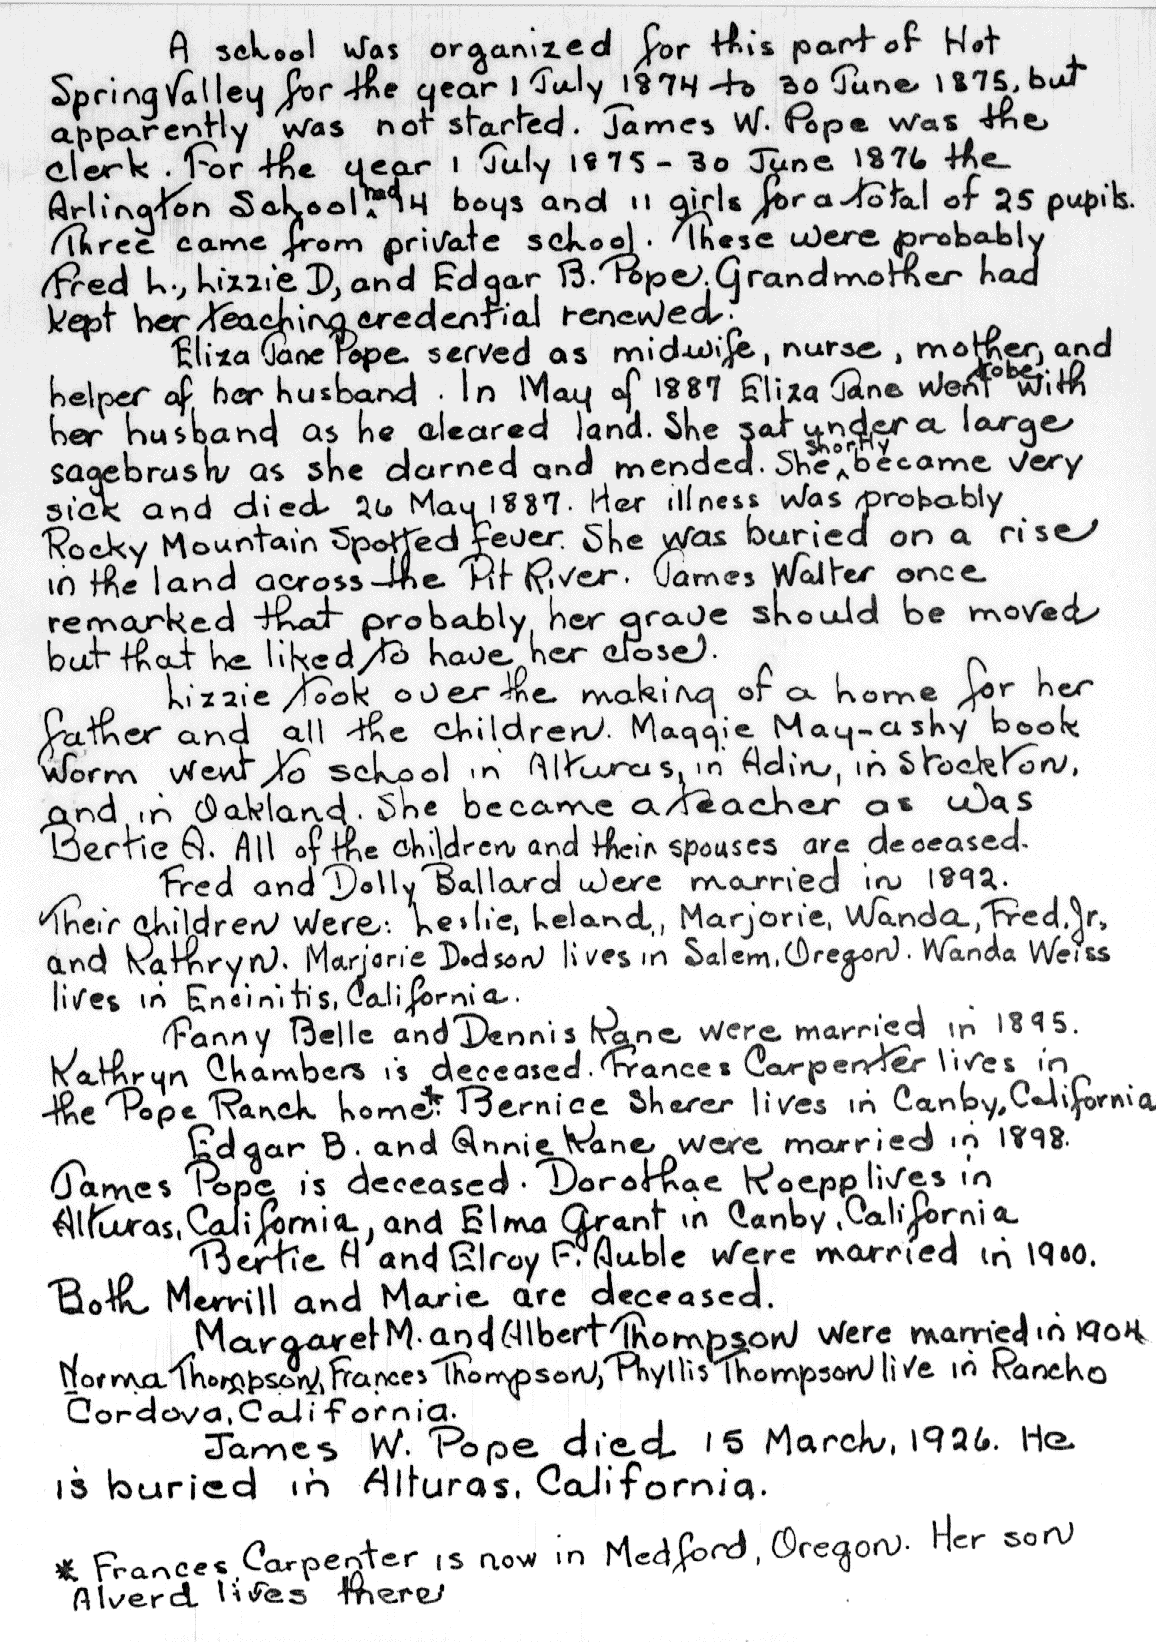 A school was organized for this part of Hot
Spring Valley for the year 1 July 1874 to 30 June 1875, but
apparently was not started. James W. Pope was the
clerk. For the year 1 July 1875 - 30 June 1876 the
Arlington School had 14 boys and 11 girls for a total of 25 pupils.
Three came from private school. These were probably
Fred L., Lizzie D, and Edgar B. Pope. Grandmother had
kept her teaching credential renewed.
Eliza Jane Pope served as midwife, nurse, mother, and
helper of her husband. In May of 1887 Eliza Jane went to be with
her husband as he cleared land. She sat under a large
sagebrush as she darned and mended. She shortly became very
sick and died 26 May 1887. Her illness was probably
Rocky Mountain Spotted Fever. She was buried on a rise
in the land across the Pit River. James Walter once
remarked that probably her grave should be moved
but that he liked to have her close.
Lizzie took over the making of a home for her
father and all the children. Maggie May-a shy book
worm went to school in Alturas, in Adin, in Stockton,
and in Oakland. She became a teacher as was
Bertie A. All of the children and their spouses are deceased.
Fred and Dolly Ballard were married in 1892.
Their children were: Leslie, Leland,, Marjorie, Wanda, Fred, Jr,
and Kathryn. Marjorie Dodson lives in Salem, Oregon. Wanda Weiss
lives in Encinitis, California.
Fanny Belle and Dennis Kane were married in 1895.
Kathryn Chambers is deceased. Frances Carpenter lives in
the Pope Ranch home*. Bernice Sherer lives in Canby, California
Edgar B. and Annie Kane were married in 1898.
James Pope is deceased. Dorothae Koepp lives in
Alturas, California, and Elma Grant in Canby, California
Bertie A and Elroy F. Auble were married in 1900.
Both Merrill and Marie are deceased.
Margaret M. and Albert Thompson were married in 1904
Norma Thompson, Frances Thompson, Phyllis Thompson live in Rancho
Cordova, California.
James W. Pope died 15 March, 1926. He
is buried in Alturas, California.
* Frances Carpenter is now in Medford, Oregon. Her son
Alverd lives there